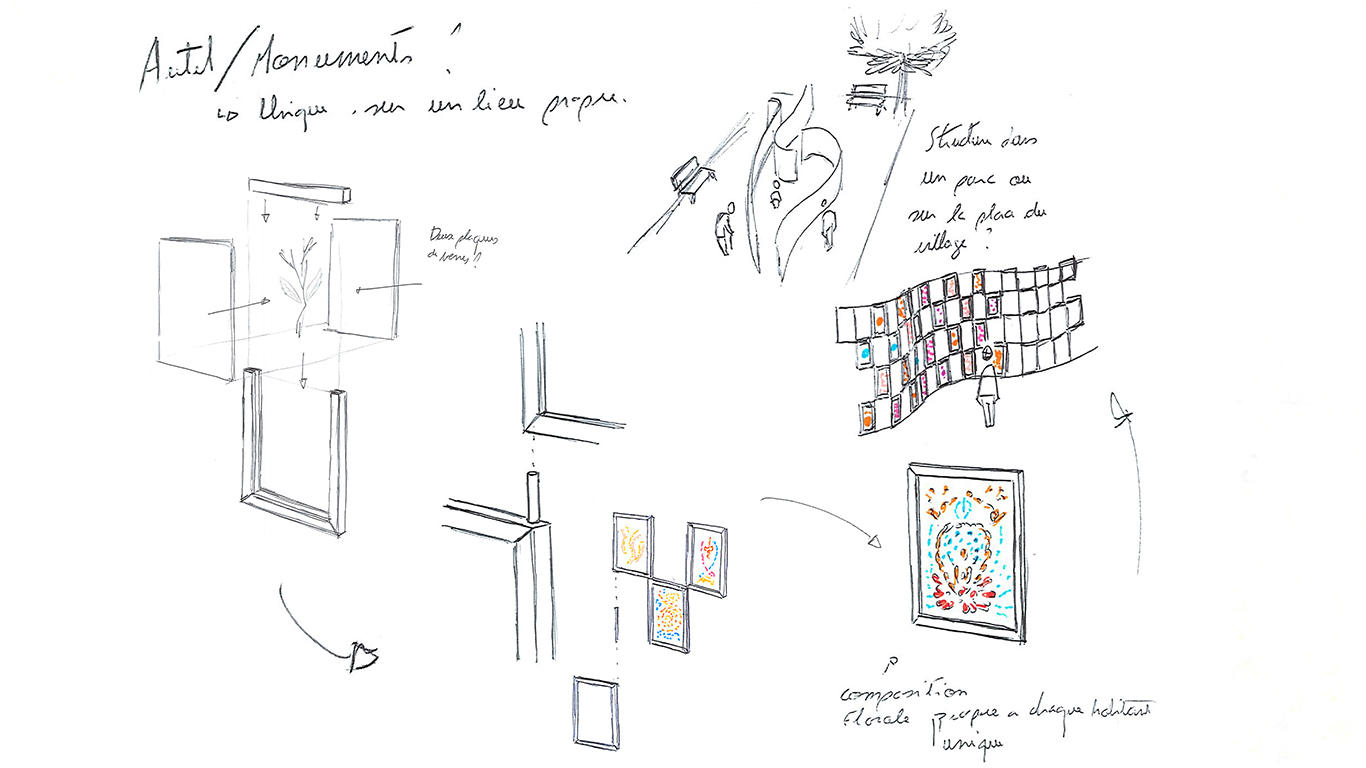 Autel/Monuments ?
↳ Unique . sur un lieu propre.
Deux plaques
de verres ?
Structure dans
un parc ou
sur la place du
village ?
composition
florale propre a chaque habitant
unique